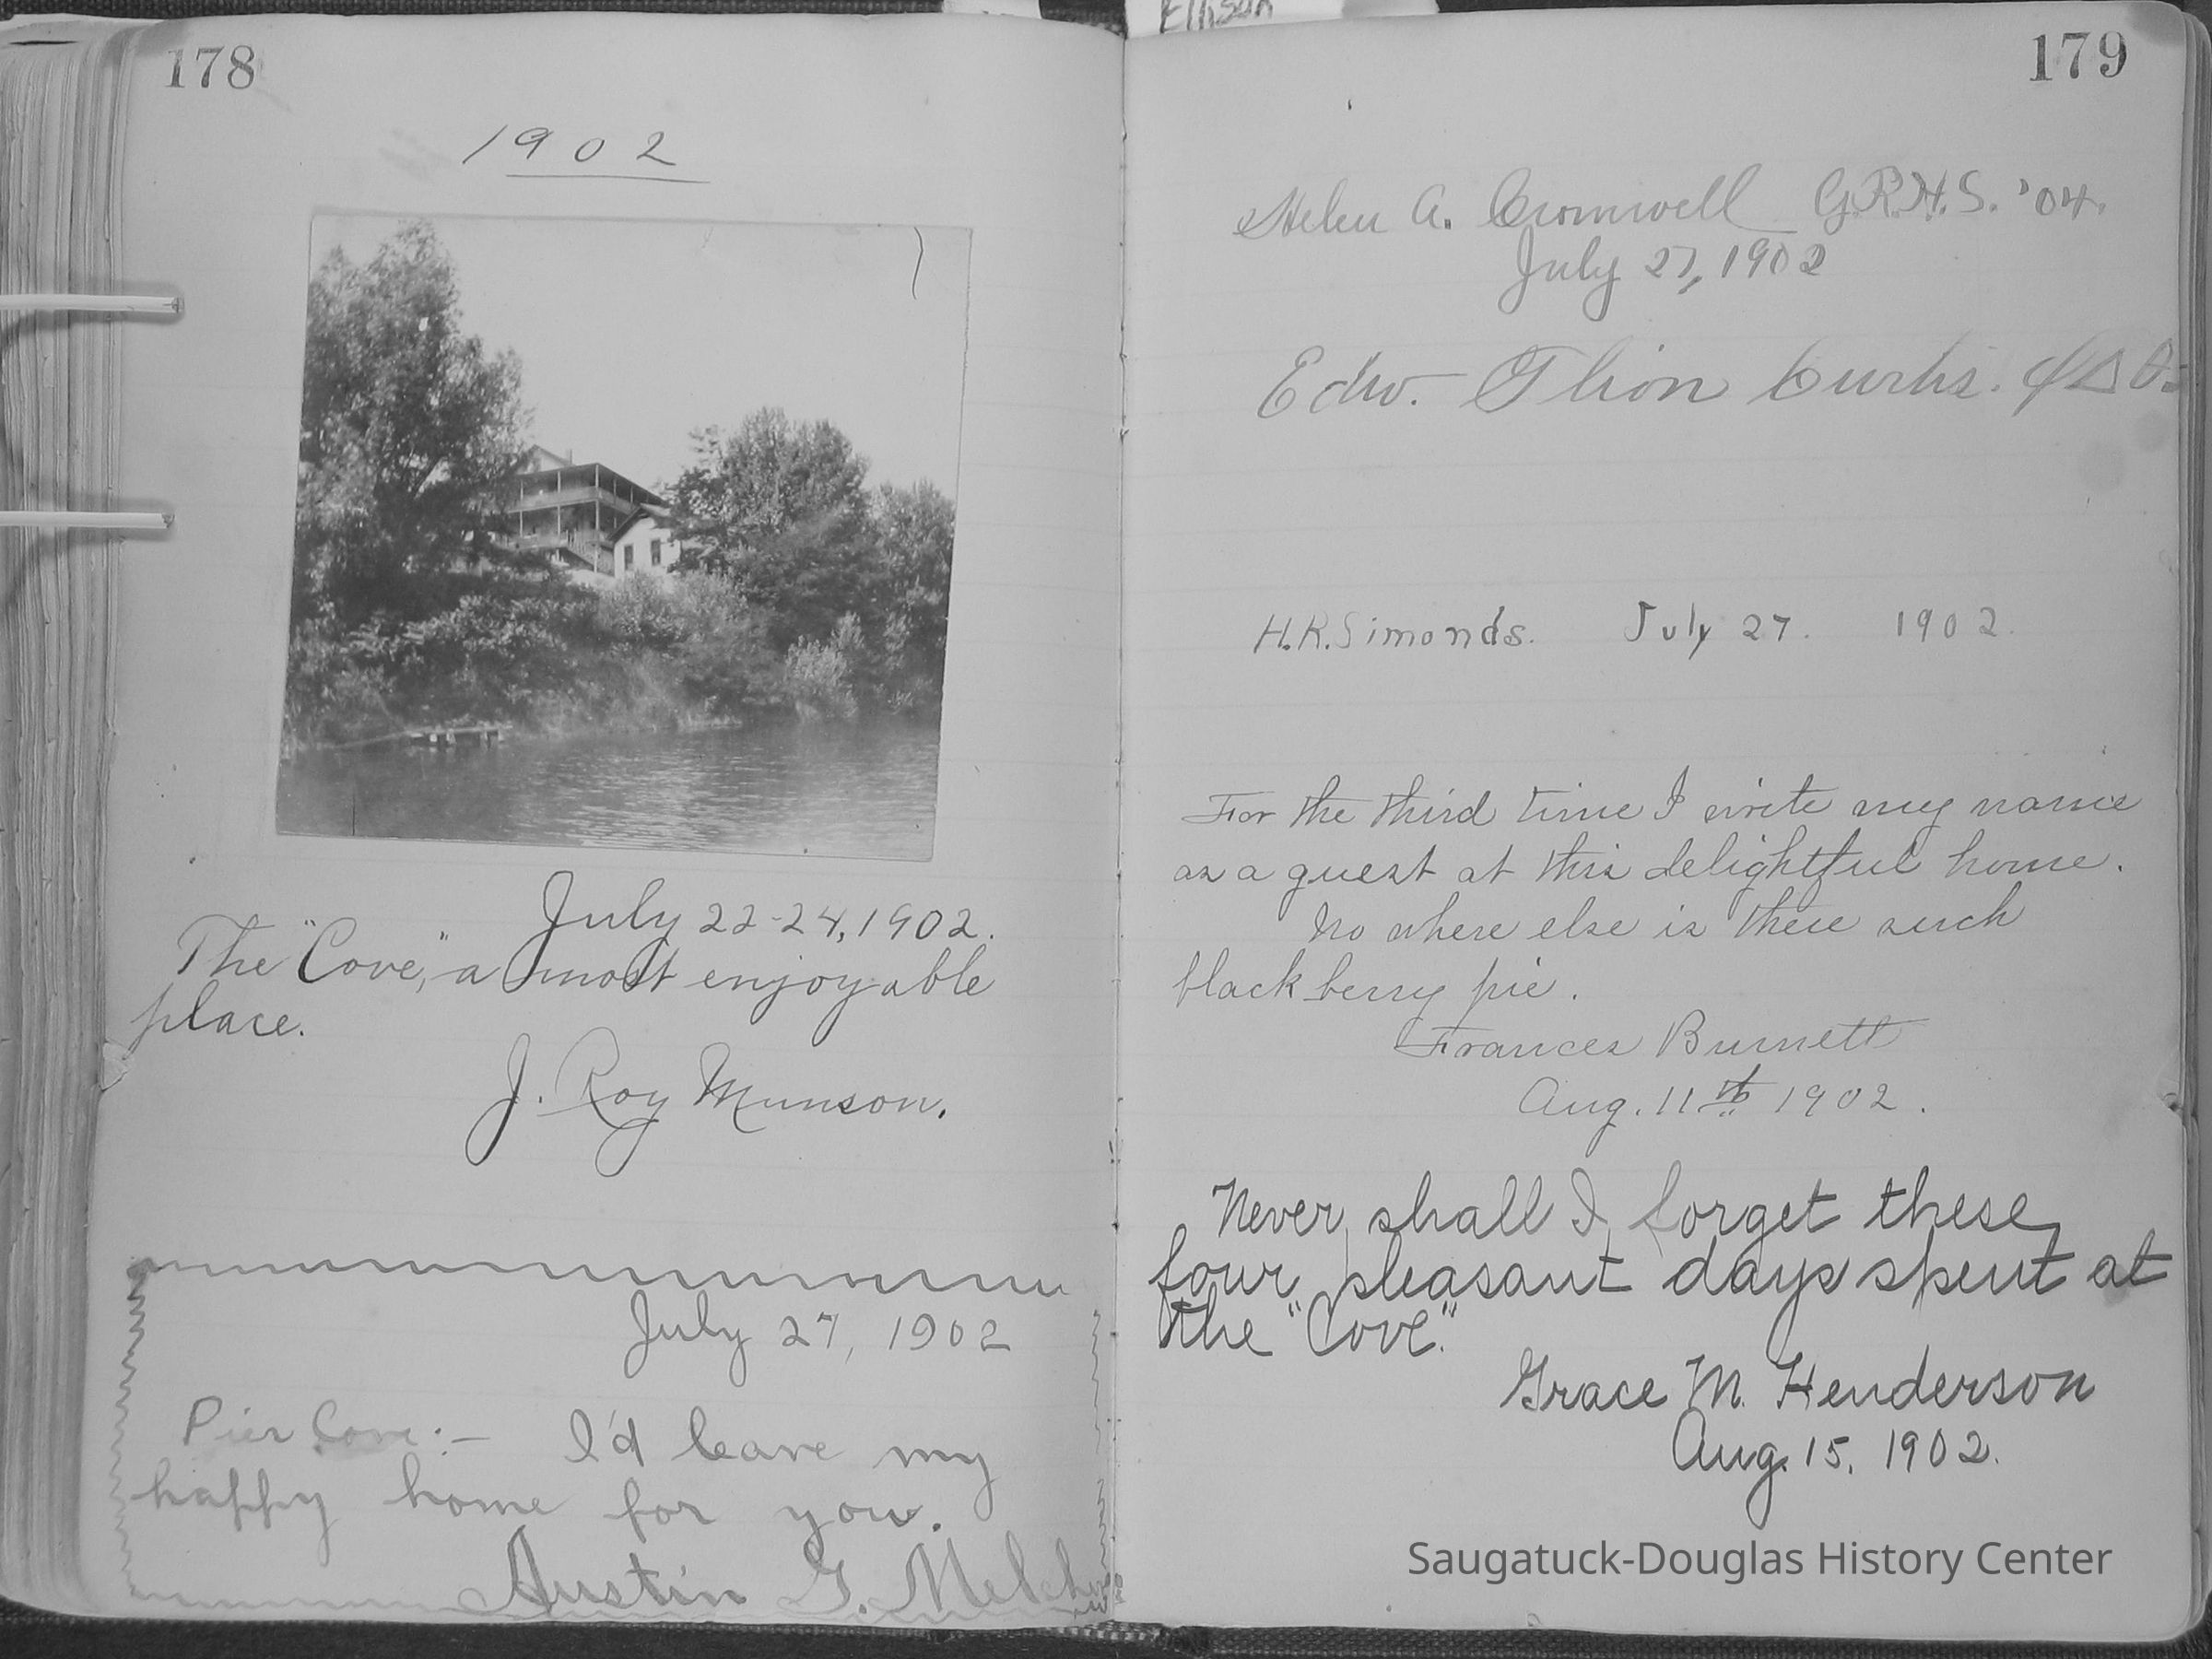 Ellison
178
1902
July 22-24, 1902.
The "Cove," a most enjoyable
place.
J. Roy Munson.
July 27, 1902
Pier Cove:- I'd leave my
happy home for you.
Austin G.
179
Helen A. Cromwell G.R.H.S. '04.
July 27, 1902
Edw. Curtis. ΦΔΘ.
H.R. Simonds. July 27. 1902.
For the third time I write my name
as a guest at this delightful home.
No where else is there such
blackberry pie.
Frances Burnett
Aug. 11th 1902.
Never shall I forget these
four pleasant days spent at
the "Cove".
Grace M. Henderson
Aug. 15, 1902.
Saugatuck-Douglas History Center